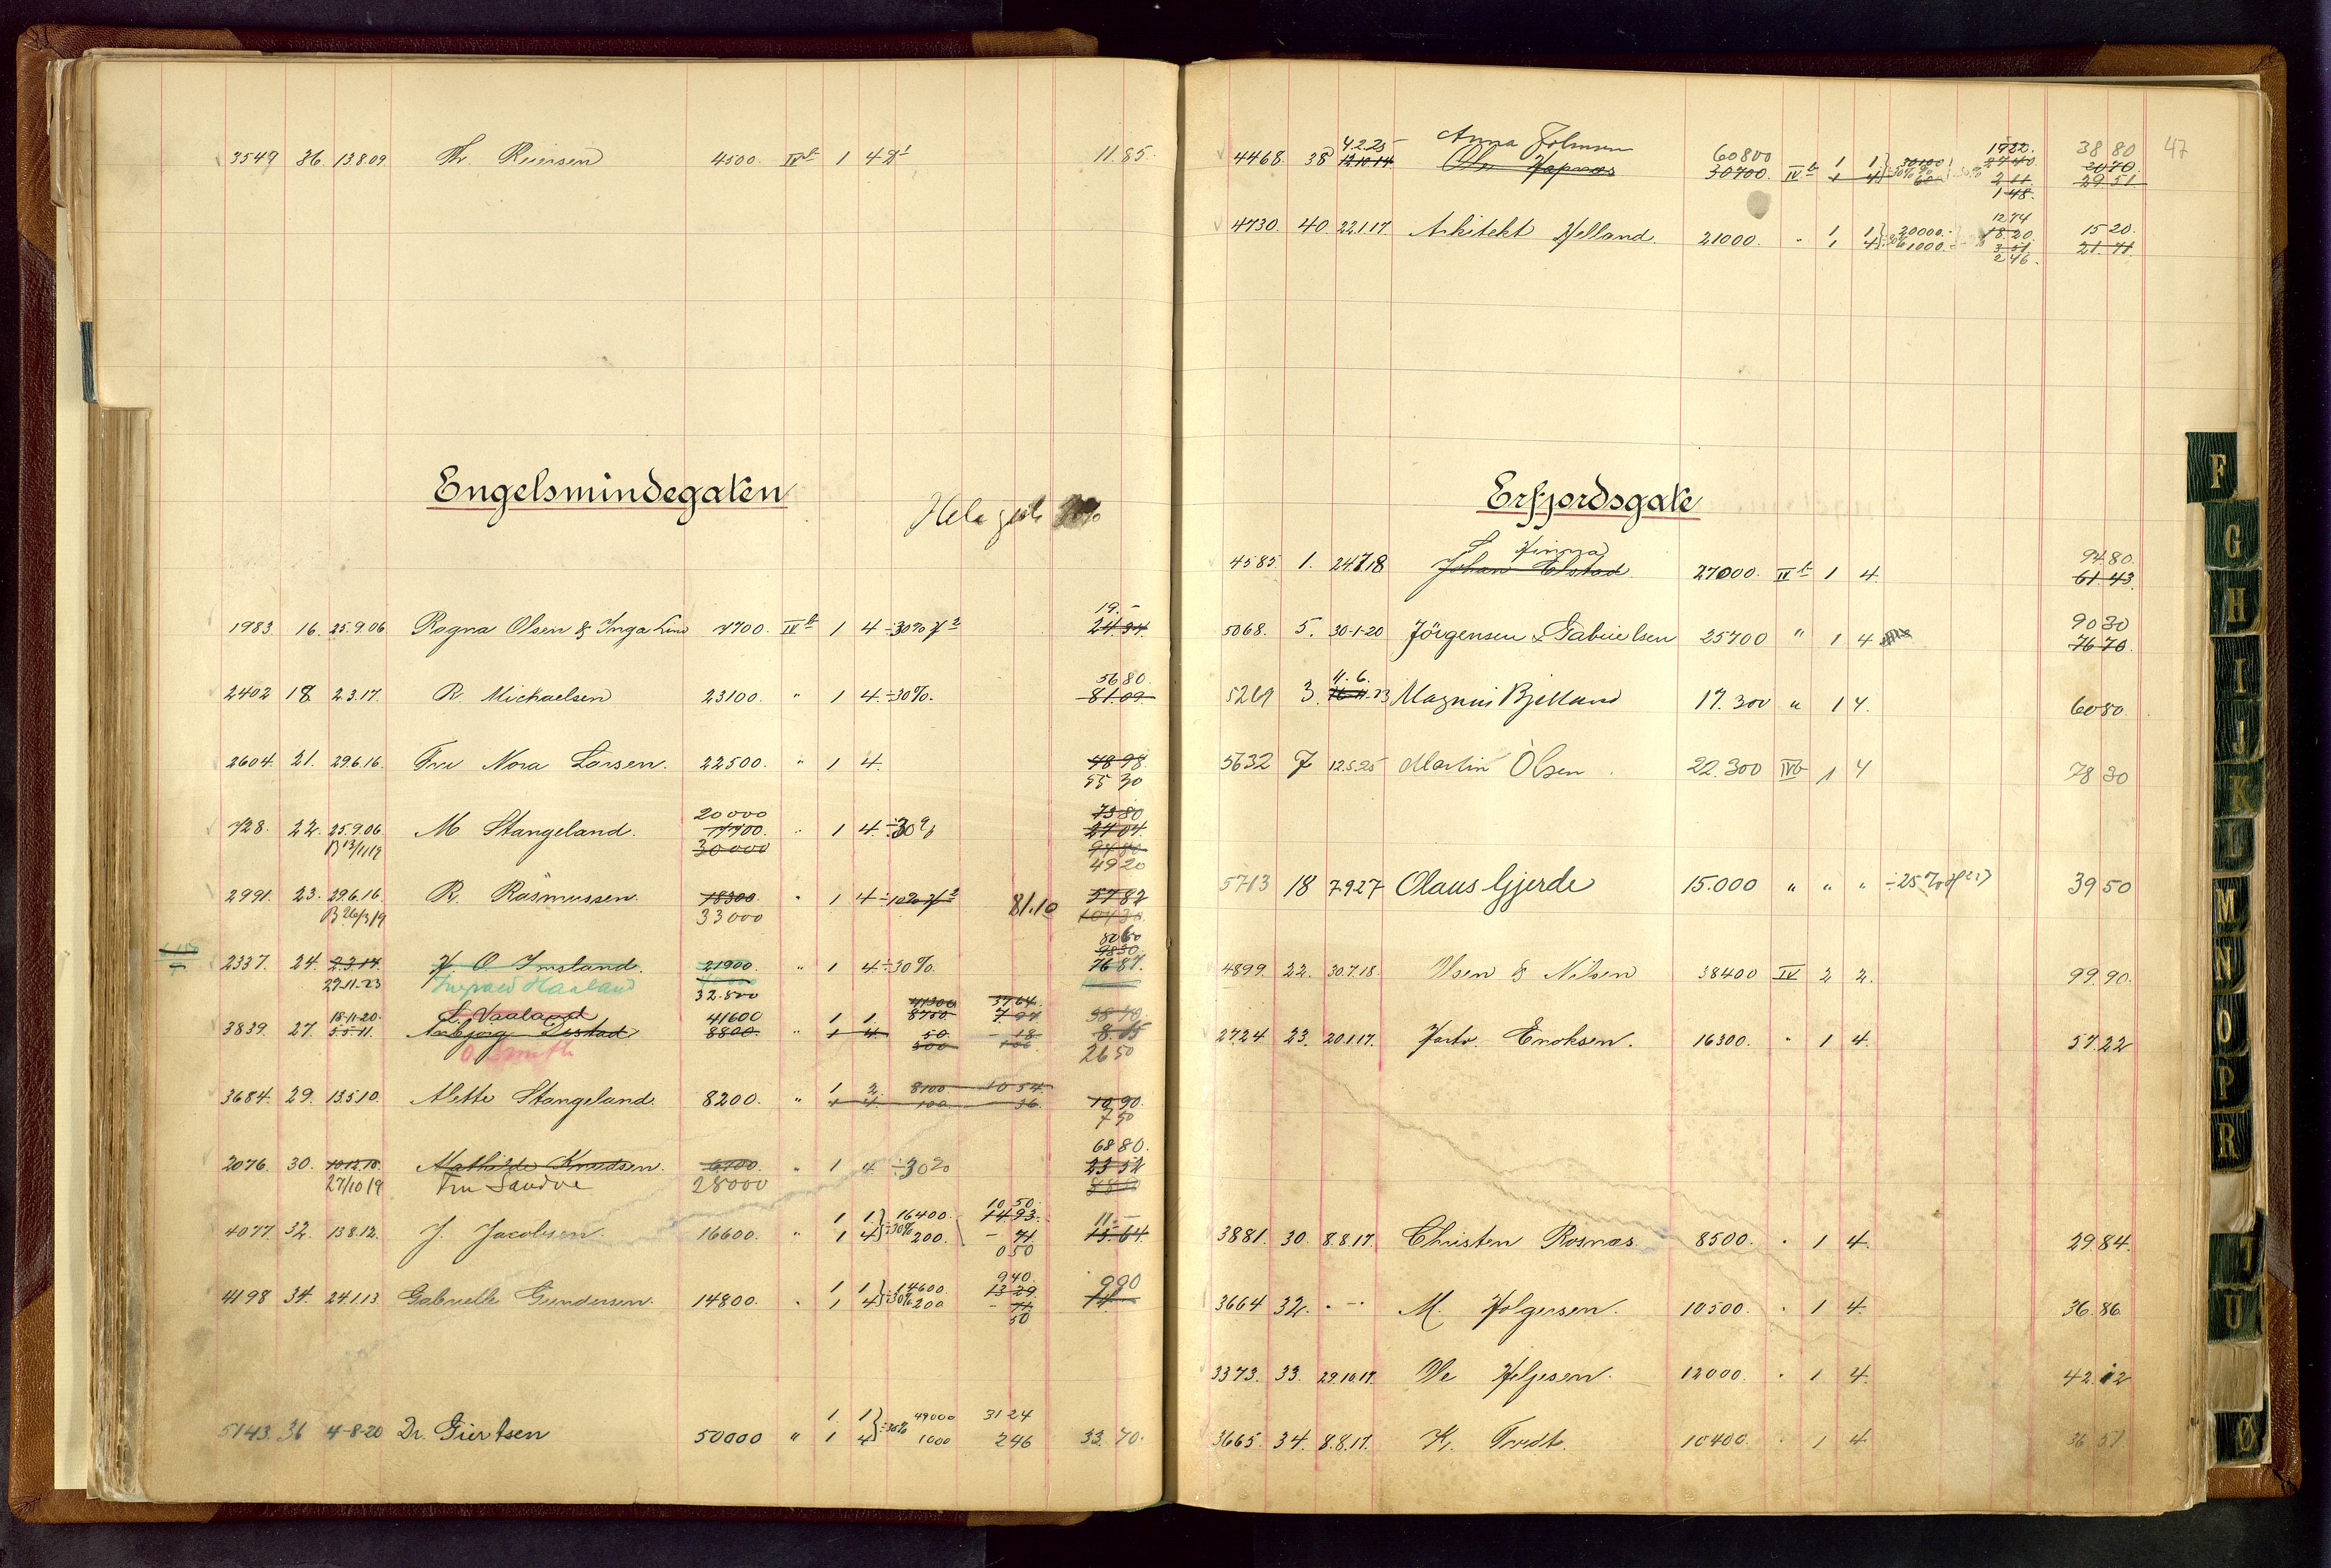 3549 36. 13.8.09. Th. Reiersen 4500. IVb 1 4 2¹ 11.85.
Engelsmindegaten
Hele gate
19.-
1983. 16. 25.9.06 Ragna Olsen & Inga Lund 7700. IVb 1 4 ÷30% 24.34
56 80.
2402 18 2.3.17. R. Michaelsen 23100. " 1 4. ÷30%. 81.09
2604. 21. 29.6.16. Fru Nora Larsen. 22500. " 1 4. 78 98.
55 30
20000 73 80
728. 22. 25.9.06. M. Stangeland. 7700. " 1 4. ÷30% 27 04.
B 13/11 19 30000
49 20
2991. 23. 29.6.16. R. Rasmussen. 18300. " 1 4 ÷10% 81.10 57 82
B 26/3 19 33000
80 60
98 30
2337. 24. 2.3.17. H. O. Imsland. 21900. " 1 4 ÷30%. 76 87.
27-11-23 Haaland 32.800
18-11-20. L. Vaaland 41600 1 1. 41300 8750. 37 64.
3839. 27. 5.5.11. Asbjørg 8800. " 1 4. 50. 8.15
26 50
1 2. 8100 10 54.
3684. 29. 13.5.10. Alette Stangeland. 8200. " 1 4. 100. 36. 10 90.
7 50
68 80.
2076. 30. 10.12.10. Mathilde Knudsen. 6700. " 1 4 ÷30% 23 52
27/10 19 Fru Sandve 28000
10 50
1 1 16400. 14 93. 11.-
4077. 32. 13.8.12. J. Jacobsen. 16600. " 1 4 ÷30% 200. - 71 15.64.
0 50
9 40.
1 1 14600. 13 29. 9 90
4198 34. 24.1.13. Gabrielle Gundersen. 14800. " 1 4 ÷30% 200 - 71 14.-
50
1 1 49000 31 24
5143. 36 4-8-20 Dr. Giertsen 50000 " 1 4 ÷30% 1000 2 46 33.70.
47
4.2.25 Anna 60800 1 1 30100 38 80
4468. 38 12.10.14. Ole 30700. IVb 1 4 ÷30% 2 11. 20 70.
29 51
1 48.
12 74
1 1 20000.- 18.20. 15 20.
4730. 40. 22.1.17. Arkitekt Helland. 21000. " 1 4 1000.- 3.51. 21.71.
2 46.
Erfjordsgate
94.80.
4585. 1. 24.7.18 Johan Elstad. 27000. IVb 1 4. 61 43.
90 30
5068. 5. 30-1-20 Jörgensen & Gabrielsen 25700 " 1 4 76 70.
11. 6.
5269 3. 23 Magnus Bjelland 17.300 " 1 4. 60 80.
5632 7 12.5.25 Martin Olsen. 22.300 IVb 1 4 78 30
5713 18 7.9.27 Olaus Gjerde 15.000 " " " ÷25% 39 50
4899. 22. 30.7.18. Olsen & Nilsen 38400 IV 2 2. 99.90.
2724 23. 20.1.17. Enoksen. 16300. " 1 4. 57.22
3881. 30. 8.8.17. Christen Rosnæs. 8500. " 1 4. 29 84.
3664 32. " -- M. Holgersen. 10500. " 1 4. 36.86.
3373. 33. 29.10.17. Ole Heljesen. 12000. " 1 4. 42.12
3665. 34. 8.8.17. K. Tvedt. 10400. " 1 4 36 51
F
G
H
I
J
K
L
M
N
O
P
R
T
U
Ø